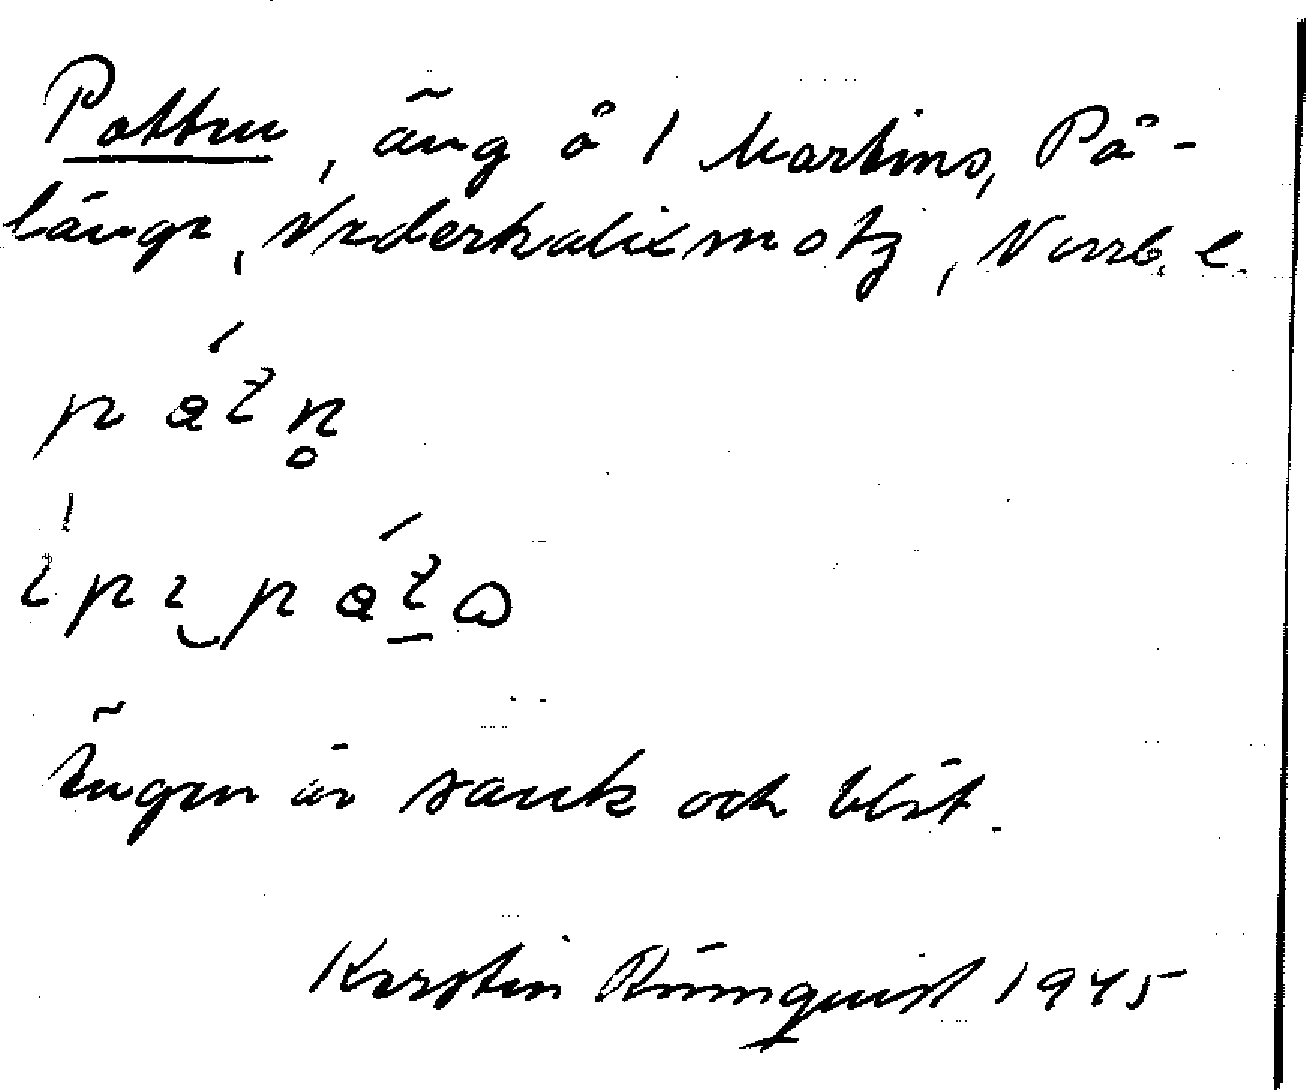 Patten, äng å 1 Martins, På-
länge, Nederkalix sn o tg, Norrb. l.
Ängen är sank och blöt.
Kerstin Rönnquist 1945